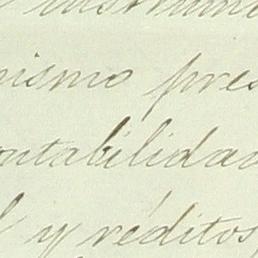 nismo pres
ontabilidad
y réditos,